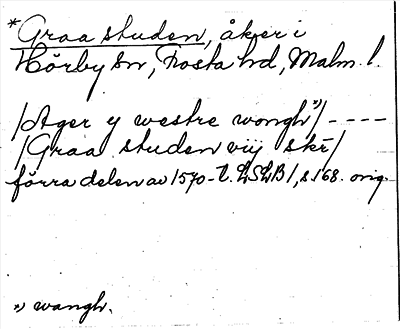 *Graa studen, åker i
Hörby sn, Frosta hd, Malm. l.
/Ager y westre wongh*)/ ----
/Graa studen vij skr/
förra delen av 1570-t. LSLB 1, s. 168. orig.
*) wangh.